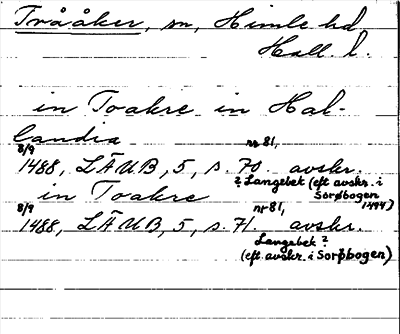 Tvååker, sn, Himle hd
Hall. l.
in Toakre in Hal-
landia
8/9 nr 81,
1488, LÄUB, 5, s. 70. avskr.
? Langebek (eft avskr. i
Sorøbogen
1494)
in Toakre
8/9 nr 81,
1488, LÄUB, 5, s. 71. avskr.
Langebek ?
(eft. avskr. i Sorøbogen)